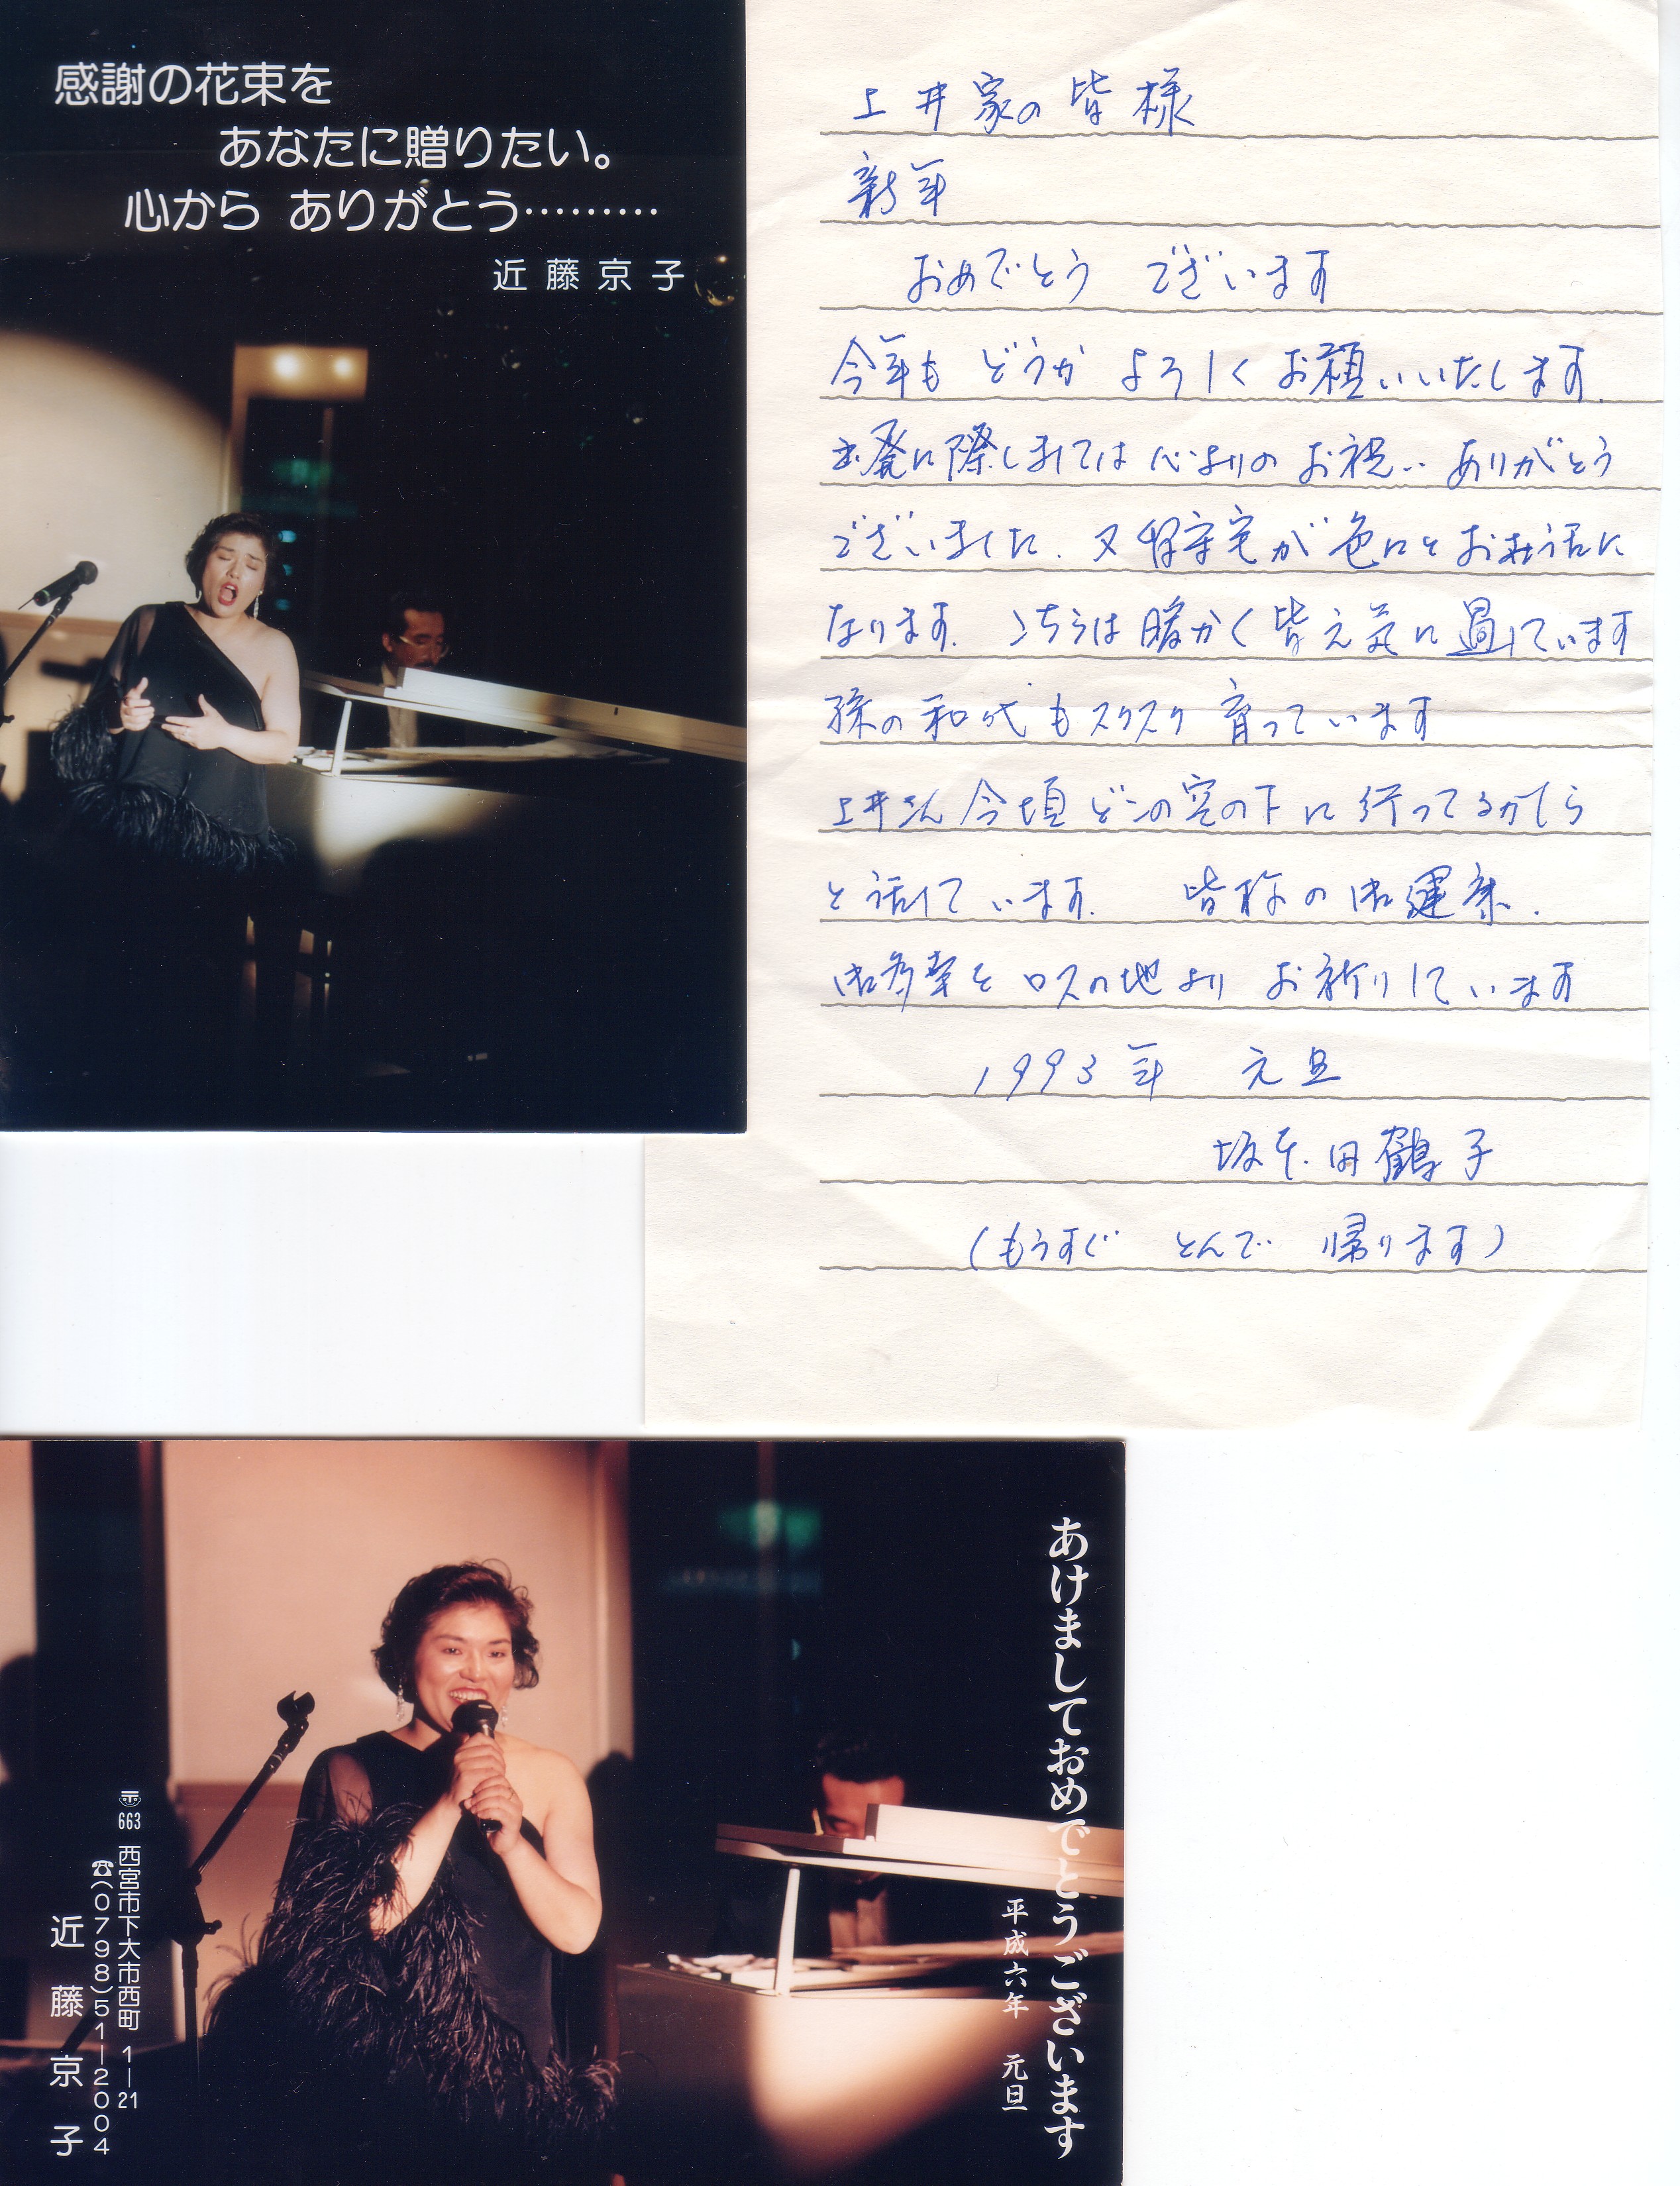 感謝の花束を
あなたに贈りたい。
心から ありがとう………
近藤京子
上井家の皆様
新年
おめでとう ございます
今年も どうか よろしく お願いいたします.
出発に際しましては 心よりの お祝い ありがとう
ございました. 又 留守宅が 色々と お世話に
なります. こちらは 暖かく 皆元気に過しています
孫の 和代も スクスク 育っています
上井さん 今頃 どこの空の下に 行ってるかしら
と話しています. 皆様の御健康.
御多幸を ロスの地より お祈りしています
1993年 元旦
坂本田鶴子
(もうすぐ とんで 帰ります)
あけましておめでとうございます
平成六年 元旦
〠663 西宮市下大市西町 1—21
☎(0798)51—2004
近藤京子